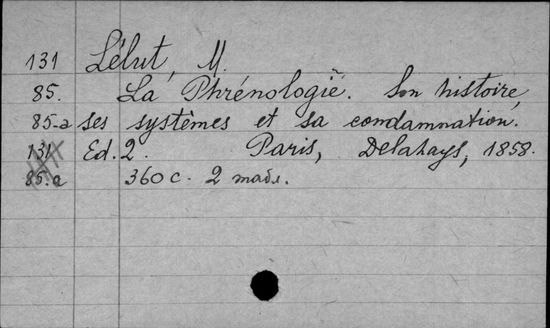 131 Lélut, M.
85. La Phrénologie. Son histoire,
85-a ses systèmes et sa condamnation.
131 Ed. 2. Paris, Delahays, 1858.
85.a 360 c. 2